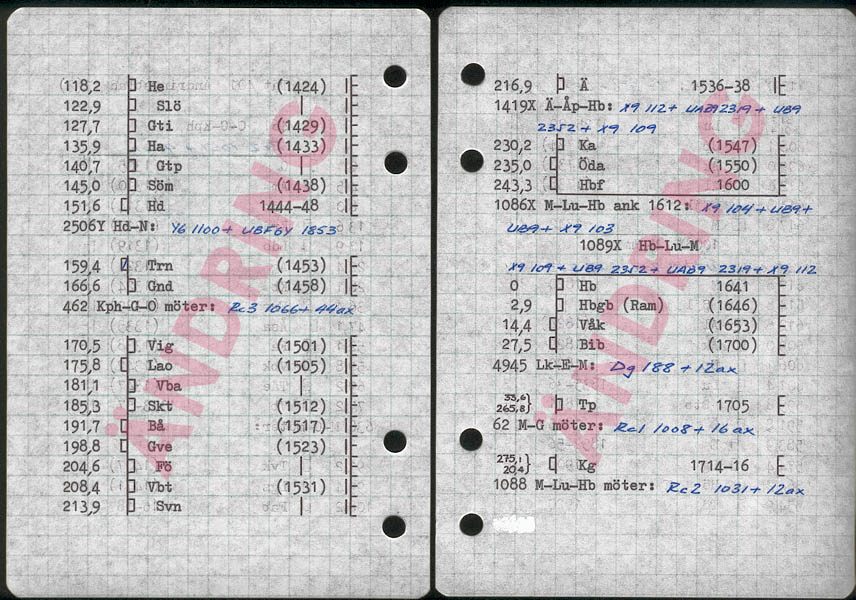 118,2 He (1424)
122,9 Slö |
127,7 Gti (1429)
135,9 Ha (1433)
140,7 Gtp |
145,0 Söm (1438)
151,6 Hd 1444-48
2506Y Hd-N: Y6 1100 + UBF6Y 1853
159,4 Trn (1453)
166,6 Gnd (1458)
462 Kph-G-O möter: Rc3 1066 + 44ax
170,5 Vig (1501)
175,8 Lao (1505)
181,1 Vba |
185,3 Skt (1512)
191,7 Bå (1517)
198,8 Gve (1523)
204,6 Fö |
208,4 Vbt (1531)
213,9 Svn |
ÄNDRING
216,9 Ä 1536-38
1419X Ä-Åp-Hb: X9 112 + UA92 2319 + UB9
2352 + X9 109
230,2 Ka (1547)
235,0 Öda (1550)
243,3 Hbf 1600
1086X M-Lu-Hb ank 1612: X9 104 + UB9 +
UB9 + X9 103
1089X Hb-Lu-M
X9 109 + UB9 2352 + UAB9 2319 + X9 112
0 Hb 1641
2,9 Hbgb (Ram) (1646)
14,4 Våk (1653)
27,5 Bib (1700)
4945 Lk-E-M: Dg 188 + 12ax
33,6}
265,8} Tp 1705
62 M-G möter: Rc1 1008 + 16 ax
275,1}
20,4} Kg 1714-16
1088 M-Lu-Hb möter: Rc2 1031 + 12ax
ÄNDRING